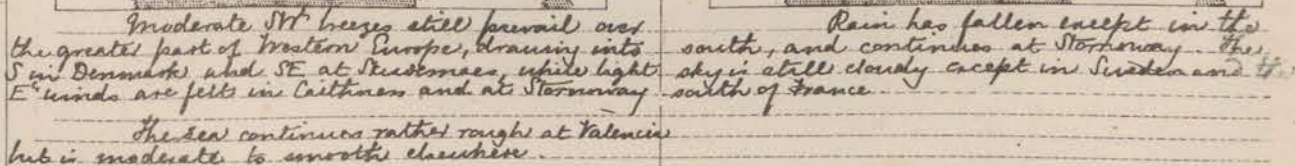 Moderate SWly breezes still prevail over
the greater part of Western Europe, drawing into
S in Denmark and SE at Skudesnaes, while light
Ely winds are felt in Caithness and at Stornoway
The sea continues rather rough at Valencia
but is moderate to smooth elsewhere.
Rain has fallen except in the
south, and continues at Stornoway. The
sky is still cloudy except in Sweden and the
south of France